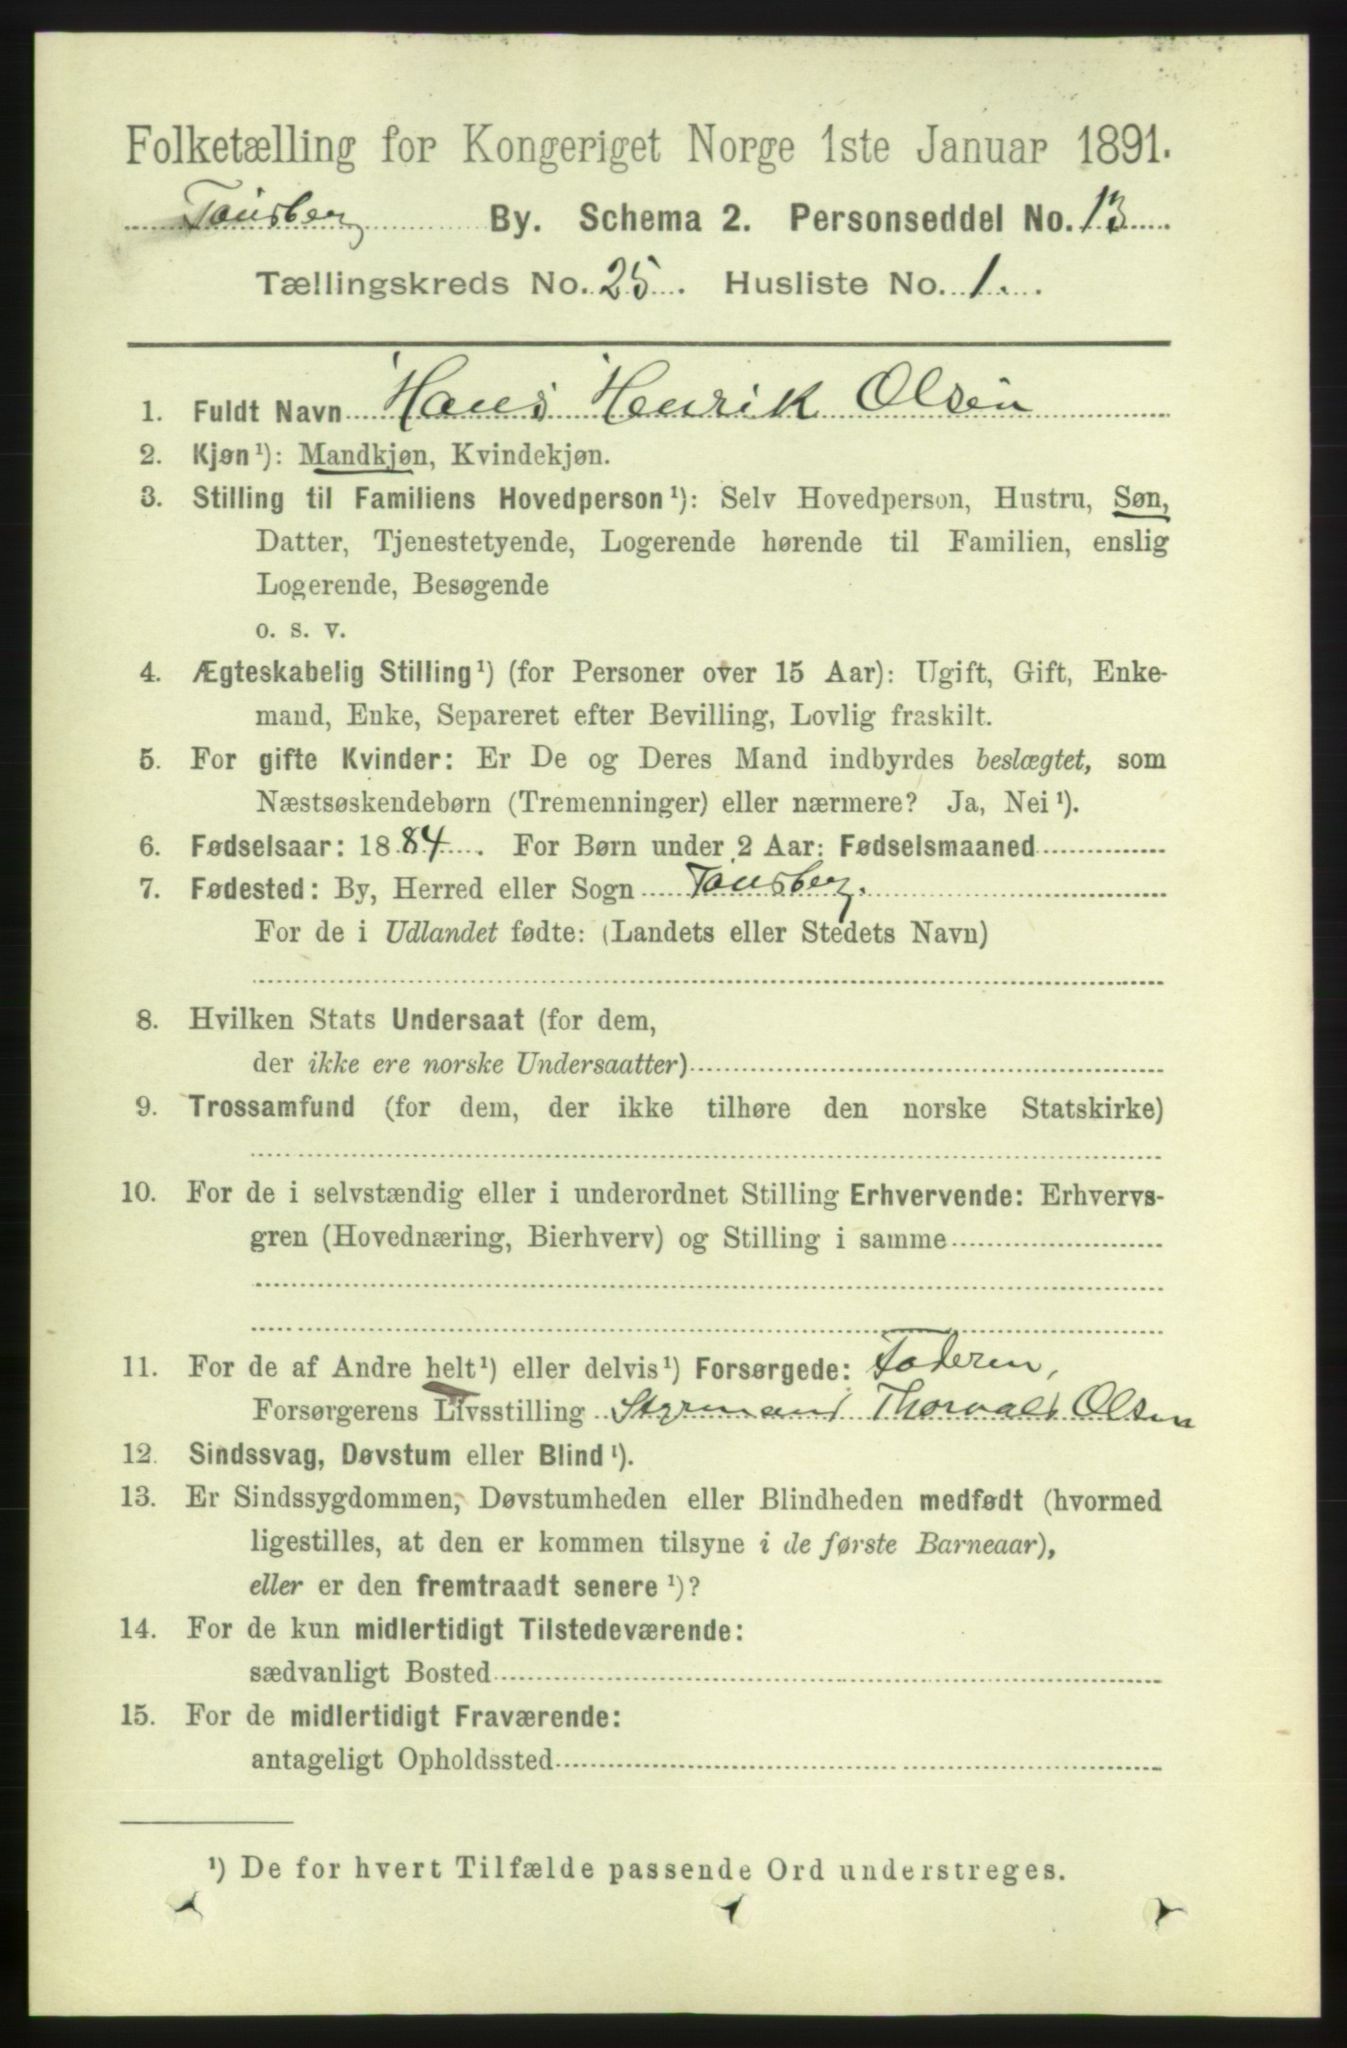 Folketælling for Kongeriget Norge 1ste Januar 1891.
Tönsberg By. Schema 2. Personseddel No. 13
Tællingskreds No. 25. Husliste No. 1.
1. Fuldt Navn Hans Henrik Olsen
2. Kjøn¹): Mandkjøn, Kvindekjøn.
3. Stilling til Familiens Hovedperson¹): Selv Hovedperson, Hustru, Søn,
Datter, Tjenestetyende, Logerende hørende til Familien, enslig
Logerende, Besøgende
o. s. v.
4. Ægteskabelig Stilling¹) (for Personer over 15 Aar): Ugift, Gift, Enke-
mand, Enke, Separeret efter Bevilling, Lovlig fraskilt.
5. For gifte Kvinder: Er De og Deres Mand indbyrdes beslægtet, som
Næstsøskendebørn (Tremenninger) eller nærmere? Ja, Nei¹).
6. Fødselsaar: 1884. For Børn under 2 Aar: Fødselsmaaned
7. Fødested: By, Herred eller Sogn Tönsberg.
For de i Udlandet fødte: (Landets eller Stedets Navn)
8. Hvilken Stats Undersaat (for dem,
der ikke ere norske Undersaatter)
9. Trossamfund (for dem, der ikke tilhøre den norske Statskirke)
10. For de i selvstændig eller i underordnet Stilling Erhvervende: Erhvervs-
gren (Hovednæring, Bierhverv) og Stilling i samme
11. For de af Andre helt¹) eller delvis¹) Forsørgede: Faderen,
Forsørgerens Livsstilling Styrmand Thorvald Olsen
12. Sindssvag, Døvstum eller Blind¹).
13. Er Sindssygdommen, Døvstumheden eller Blindheden medfødt (hvormed
ligestilles, at den er kommen tilsyne i de første Barneaar),
eller er den fremtraadt senere¹)?
14. For de kun midlertidigt Tilstedeværende:
sædvanligt Bosted
15. For de midlertidigt Fraværende:
antageligt Opholdssted
¹) De for hvert Tilfælde passende Ord understreges.